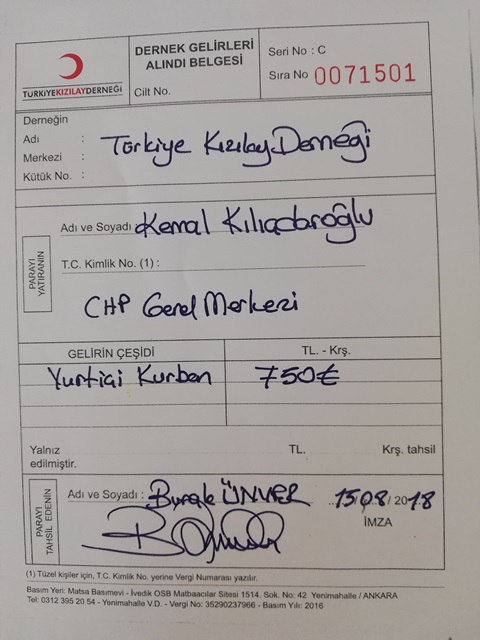 TÜRKİYEKIZILAYDERNEĞİ
DERNEK GELİRLERİ
ALINDI BELGESİ
Cilt No.
Seri No : C
Sıra No 0071501
Derneğin
Adı :
Merkezi : Türkiye Kızılay Derneği
Kütük No. :
PARAYI
YATIRANIN
Adı ve Soyadı Kemal Kılıçdaroğlu
T.C. Kimlik No. (1) :
CHP Genel Merkezi
GELİRİN ÇEŞİDİ TL. - Krş.
Yurtiçi Kurban 750₺
Yalnız TL. Krş. tahsil
edilmiştir.
PARAYI
TAHSİL EDENİN
Adı ve Soyadı : Burak ÜNVER 15/08/2018
İMZA
(1) Tüzel kişiler için, T.C. Kimlik No. yerine Vergi Numarası yazılır.
Basım Yeri: Matsa Basımevi - İvedik OSB Matbaacılar Sitesi 1514. Sok. No: 42 Yenimahalle / ANKARA
Tel: 0312 395 20 54 - Yenimahalle V.D. - Vergi No: 35290237966 - Basım Yılı: 2016